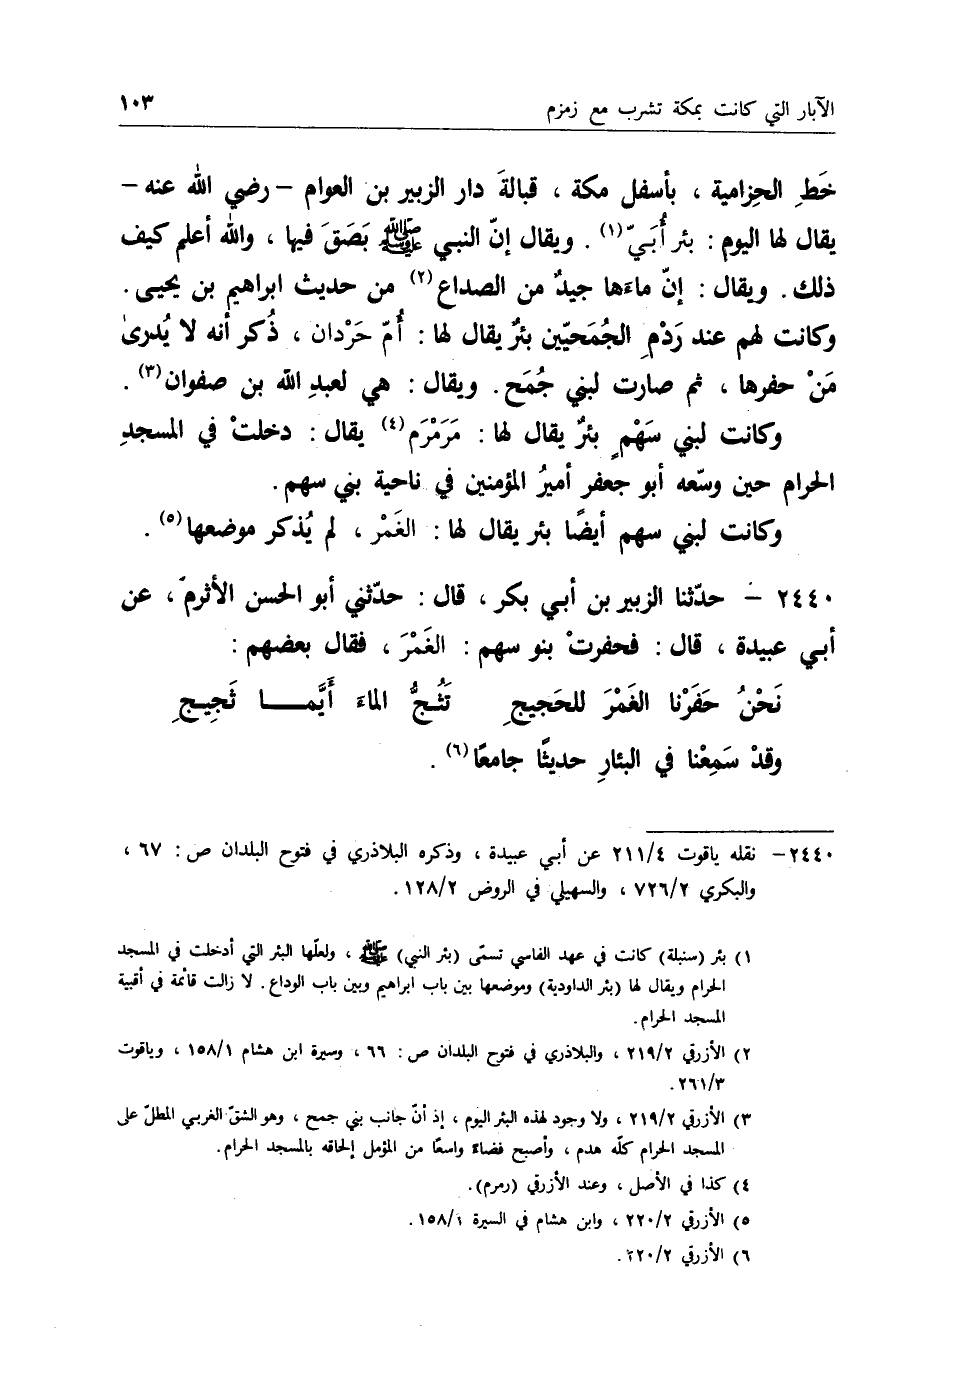 الآبار التي كانت بمكة تشرب مع زمزم ١٠٣
خَطِ الحِزامية ، بأسفل مكة ، قبالةَ دار الزبير بن العوام – رضي الله عنه –
يقال لها اليوم : بئر أُبَيّ(١) . ويقال إنّ النبي ﷺ بَصَقَ فيها ، والله أعلم كيف
ذلك . ويقال : إنّ ماءَها جيدٌ من الصداع(٢) من حديث ابراهيم بن يحيى .
وكانت لهم عند رَدْمِ الجُمَحيّين بئرٌ يقال لها : أُمّ حَرْدان ، ذُكر أنه لا يُدرىٰ
مَنْ حفرها ، ثم صارت لبني جُمَح . ويقال : هي لعبدِ الله بن صفوان(٣) .
وكانت لبني سَهْمٍ بئرٌ يقال لها : مَرَمْرَم(٤) يقال : دخلتْ في المسجدِ
الحرام حين وسّعه أبو جعفر أميرُ المؤمنين في ناحية بني سهم .
وكانت لبني سهم أيضًا بئر يقال لها : الغَمْر ، لم يُذكر موضعها(٥) .
٢٤٤٠ – حدّثنا الزبير بن أبي بكر ، قال : حدّثني أبو الحسن الأثرم ، عن
أبي عبيدة ، قال : فحفرتْ بنو سهم : الغَمْرَ ، فقال بعضهم :
نَحْنُ حَفَرْنا الغَمْرَ للحَجيجِ تَثُجُّ الماءَ أَيَّمــا ثَجِيجِ
وقدْ سَمِعْنا في البئارِ حديثًا جامعًا(٦) .
٢٤٤٠– نقله ياقوت ٢١١/٤ عن أبي عبيدة ، وذكره البلاذري في فتوح البلدان ص : ٦٧ ،
والبكري ٧٢٦/٢ ، والسهيلي في الروض ١٢٨/٢ .
١) بئر (سنبلة) كانت في عهد الفاسي تسمّى (بئر النبي) ﷺ ، ولعلّها البئر التي أدخلت في المسجد
الحرام ويقال لها (بئر الداودية) وموضعها بين باب ابراهيم وبين باب الوداع . لا زالت قائمة في أقبية
المسجد الحرام .
٢) الأزرقي ٢١٩/٢ ، والبلاذري في فتوح البلدان ص : ٦٦ ، وسيرة ابن هشام ١٥٨/١ ، وياقوت
٢٦١/٣ .
٣) الأزرقي ٢١٩/٢ ، ولا وجود لهذه البئر اليوم ، إذ أنّ جانب بني جمح ، وهو الشقّ الغربي المطلّ على
المسجد الحرام كلّه هدم ، وأصبح فضاءً واسعًا من المؤمل إلحاقه بالمسجد الحرام .
٤) كذا في الأصل ، وعند الأزرقي (رمرم) .
٥) الأزرقي ٢٢٠/٢ ، وابن هشام في السيرة ١٥٨/١ .
٦) الأزرقي ٢٢٠/٢ .